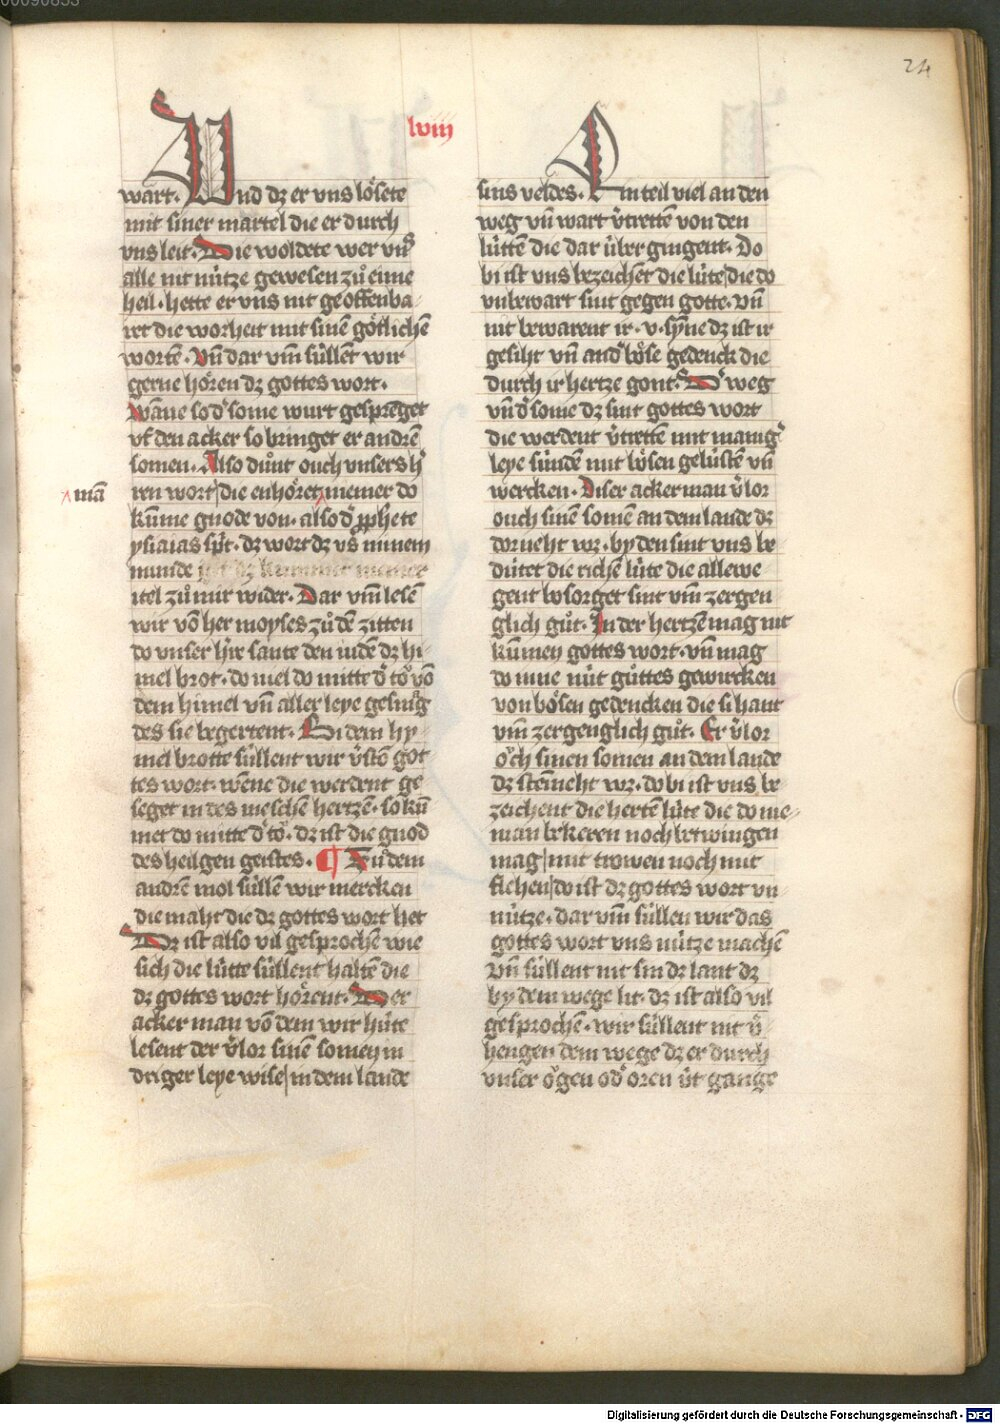 24
lviii
wart. Und dz er vns lôsete
mit siner martel die er durch
vns leit. Die woldete wer vns
alle nit nútze gewesen zů eime
heil. hette er vns nit geoffenba-
ret die worheit mit sinē gôtlichen
wortē. Vn̄ dar vm̄ súllent wir
gerne hôren dz gottes wort.
wāne so d' some wurt gespreget
vf den acker so bringet er andrē
somen. Also důnt ouch vnsers h'
ren wort die enhôret niemer do
mā
kūme gnode von. also d' ꝓphete
ysaias spt. dz wort dz vs minem
munde got dz kummet niemer
itel zů mir wider. Dar vm̄ lesē
wir vō her moyses zů dē zitten
do vnser hrē sante den iudē dz hi-
mel brot. do viel do mitte d' tǒ vō
dem himel vn̄ aller leye gesmag
des sie begertent. Bi dem hy-
mel brotte súllent wir v'stō got
tes wort. wēne die werdent ge
seget in des mēschē hertzē. so kū
met do mitte d' tǒ. dz ist die gnod
des heilgen geistes. ¶ Zů dem
andrē mol súllē wir mercken
die maht die dz gottes wort het
Dz ist also vil gesprochē wie
sich die lútte súllent haltē die
dz gottes wort hôrent. Der
acker man vō dem wir húte
lesent der v'lor sinē somen in
driger leye wise in dem lande
sins veldes. Ein teil viel an den
weg vn̄ wart v'trettē von den
lúttē die dar úber gingent. Do
bi ist vns bezeichēt die lúte die do
vnbewart sint gegen gotte. vn̄
nit bewarent ir .v. sȳne dz ist ir
gesiht vn̄ and' bôse gedenck die
durch ir hertze gont. D' weg
vn̄ d' some dz sint gottes wort
die werdent v'trettē mit manig'
leye súnden mit bôsen gelústē vn̄
wercken. Diser ackerman v'lor
ouch sinē somē an dem lande dz
dorneht wz. by den sint vns be
dútet die richē lúte die allewe
gent besorget sint vm̄ zergen
glich gůt. In der hertzē mag nit
kūmen gottes wort. vn̄ mag
do inne nút gůttes gewurcken
von bôsen gedencken die si hant
vm̄ zergenglich gůt. Er v'lor
ǒch sinen somen an dem lande
dz steineht wz. do bi ist vns be
zeichent die hertē lúte die do nie-
man bekeren noch betwingen
mag mit trowen noch mit
flehen do ist dz gottes wort vn
nútze. dar vm̄ súllen wir das
gottes wort vns nútze machē
vn̄ súllent nit sin dz lant dz
by dem wege lit. dz ist also vil
gesprochē. wir súllent nit v'
hengen dem wege dz er durch
vnser ǒgen od' oren út gange
Digitalisierung gefördert durch die Deutsche Forschungsgemeinschaft - DFG